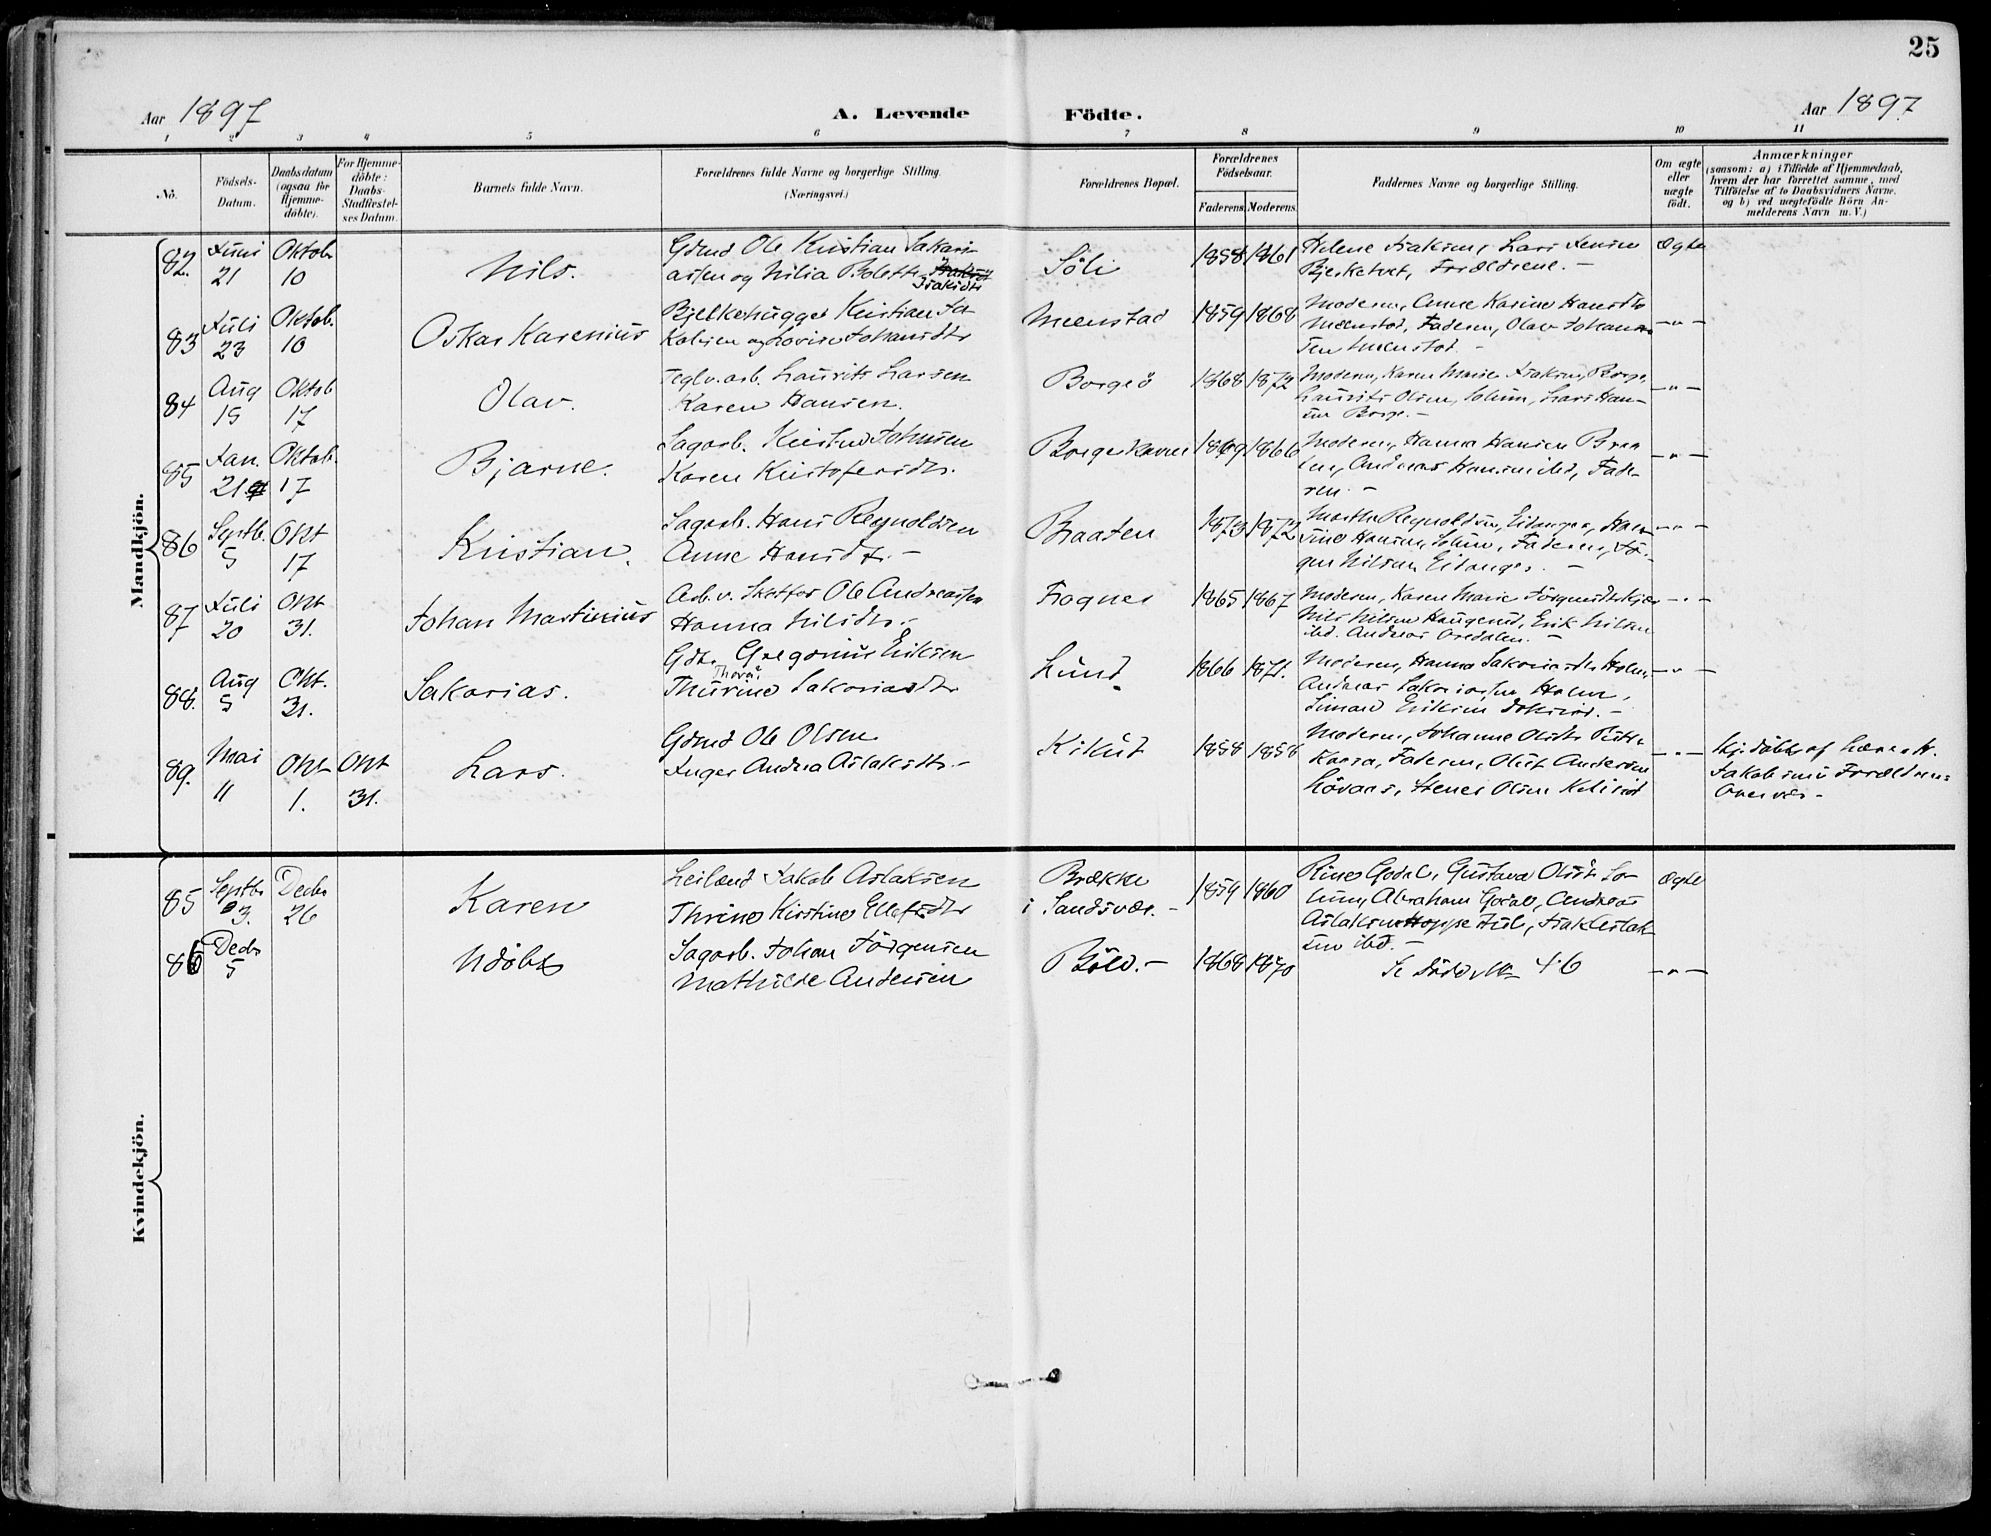 25
Aar 1897
A. Levende Födte.
Aar 1897
1 2 3 4 5 6 7 8 9 10 11
No.
Födsels-Datum.
Daabsdatum (ogsaa for Hjemme-döbte).
For Hjemme-döbte: Daabs-Stadfæstel-ses Datum.
Barnets fulde Navn.
Forældrenes fulde Navne og borgerlige Stilling.
(Næringsvei.)
Forældrenes Bopæl.
Forældrenes Födselsaar.
Faderens. Moderens.
Faddernes Navne og borgerlige Stilling.
Om ægte eller uægte födt.
Anmærkninger
(saasom: a) i Tilfælde af Hjemmedaab, hvem der har forrettet samme, med Tilföielse af to Daabsvidners Navne, og b) ved uægtefödte Börn An-melderens Navn m. V.)
Mandkjön.
82. Juni 21 Oktob. 10 Nils.
Gdmd Ole Kristian Sakari-
assen og Nilia Bolette Isaksdtr
Söli 1858 1861
Helene Isaksen, Lars Jensen
Bjerketvet, Forældrene. -
Ægte
83 Juli 23 Oktob. 10 Oskar Karenius
Bjelkehugger Kristian Ja-
kobsen og Lovise Johansdtr
Menstad 1859 1868
Moderen, Anne Karine Hansdtr
Menstad, Faderen, Olav Johan-
sen Menstad. -
- " -
84 Aug 15 Oktob 17 Olav.
Teglv.arb. Laurits Larsen
Karen Hansen.
Borgeö 1868 1872
Moderen, Karen Marie Isaksen, Borge,
Laurits Olsen, Solum, Lars Han-
sen Borge. -
- " -
85 Jan. 21 Oktob. 17 Bjarne.
Sagarb. Kristen Johnsen
Karen Kristofersdtr.
Borgeskaven 1869 1866
Moderen, Hanna Hansen Braa
ten, Andreas Hansen ibd, Fade-
ren. -
- " -
86 Septb. 5 Okt 17 Kristian.
Sagarb. Hans Reynoldsen
Anne Hansdtr. -
Braaten 1873 1872
Marthe Reynoldsen, Eidanger, Han
sine Hansen, Solum, Faderen, Jör-
gen Nilsen Eidanger. -
- " -
87 Juli 20 Okt 31. Johan Martinius
Arb. v. Skotfos Ole Andreassen
Hanna Nilsdtr. -
Fragnes 1865 1867
Moderen, Karen Marie Jörgensdtr Kjær
Nils Nilsen Haugerud, Erik Nilsen
ibd. Andreas
- " -
88. Aug 5 Okt. 31. Sakarias.
Gdbr. Gregorius Eriksen
Thora
Thurine Sakariasdtr
Lund 1866 1871.
Moderen, Hanna Sakariasdtr Holm,
Andreas Sakariassen Holm,
- " -
89. Mai 11 Okt 1. Okt 31. Lars.
Gdmd Ole Olsen
Inger Andrea Aslaksdtr. -
Kikut 1858 1858
Moderen, Johanne Olsdtr
Faderen, Oluf Andersen
Lövaas, Stener Olsen
- " -
Hj. döbt af Lærer H.
Jakobsen Forældrene
Overvær -
Kvindekjön.
85 Septbr 23. Decbr 26 Karen
Leilænd Jakob Aslaksen
Thrine Kirstine Ellefsdtr
Brække
i Sandsvær. -
1859 1860
Rine Godal, Gustava Olsdtr So-
lum, Abraham Godal, Andreas
Aslaksen Isak Aslak-
sen ibd. -
Ægte
86 Decbr 5 Udöbt
Sagarb. Johan Jörgensen
Mathilde Andersen
Böle. - 1868 1870
Se Dödsf. No 46
- " -